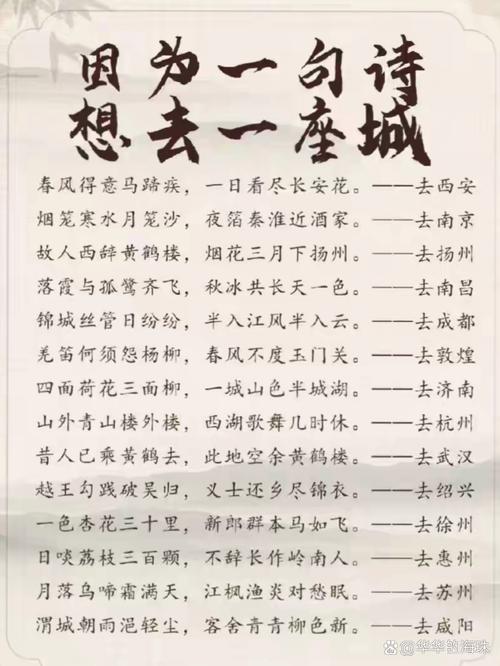 因为一句诗
想去一座城
春风得意马蹄疾，一日看尽长安花。——去西安
烟笼寒水月笼沙，夜箔秦淮近酒家。——去南京
故人西辞黄鹤楼，烟花三月下扬州。——去扬州
落霞与孤鹭齐飞，秋冰共长天一色。——去南昌
锦城丝管日纷纷，半入江风半入云。——去成都
羌笛何须怨杨柳，春风不度玉门关。——去敦煌
四面荷花三面柳，一城山色半城湖。——去济南
山外青山楼外楼，西湖歌舞几时休。——去杭州
昔人已乘黄鹤去，此地空余黄鹤楼。——去武汉
越王勾践破吴归，义士还乡尽锦衣。——去绍兴
一色杏花三十里，新郎群本马如飞。——去徐州
日啖荔枝三百颗，不辞长作岭南人。——去惠州
月落乌啼霜满天，江枫渔炎对愁眠。——去苏州
渭城朝雨浥轻尘，客舍青青柳色新。——去咸阳
@华华的海珠